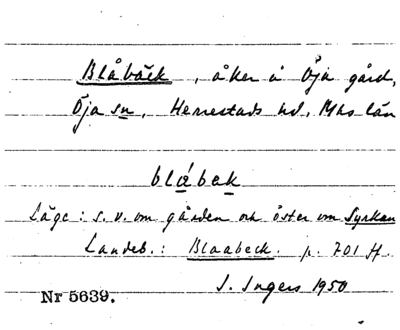 Blåbäck, åker å Öja gård,
Öja sn, Herrestads hd, Mhs län
blábak
Läge: s.v. om gården och öster om Syrkan
Landeb.: Blaabeck. p. 701 ff.
I. Ingers 1950
Nr 5639.